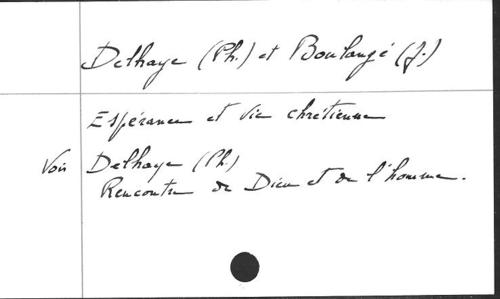 Delhaye (Ph.) et Boulangé (J.)
Espérance et vie chrétienne
Voir Delhaye (Ph.)
Rencontre de Dieu et de l'homme.